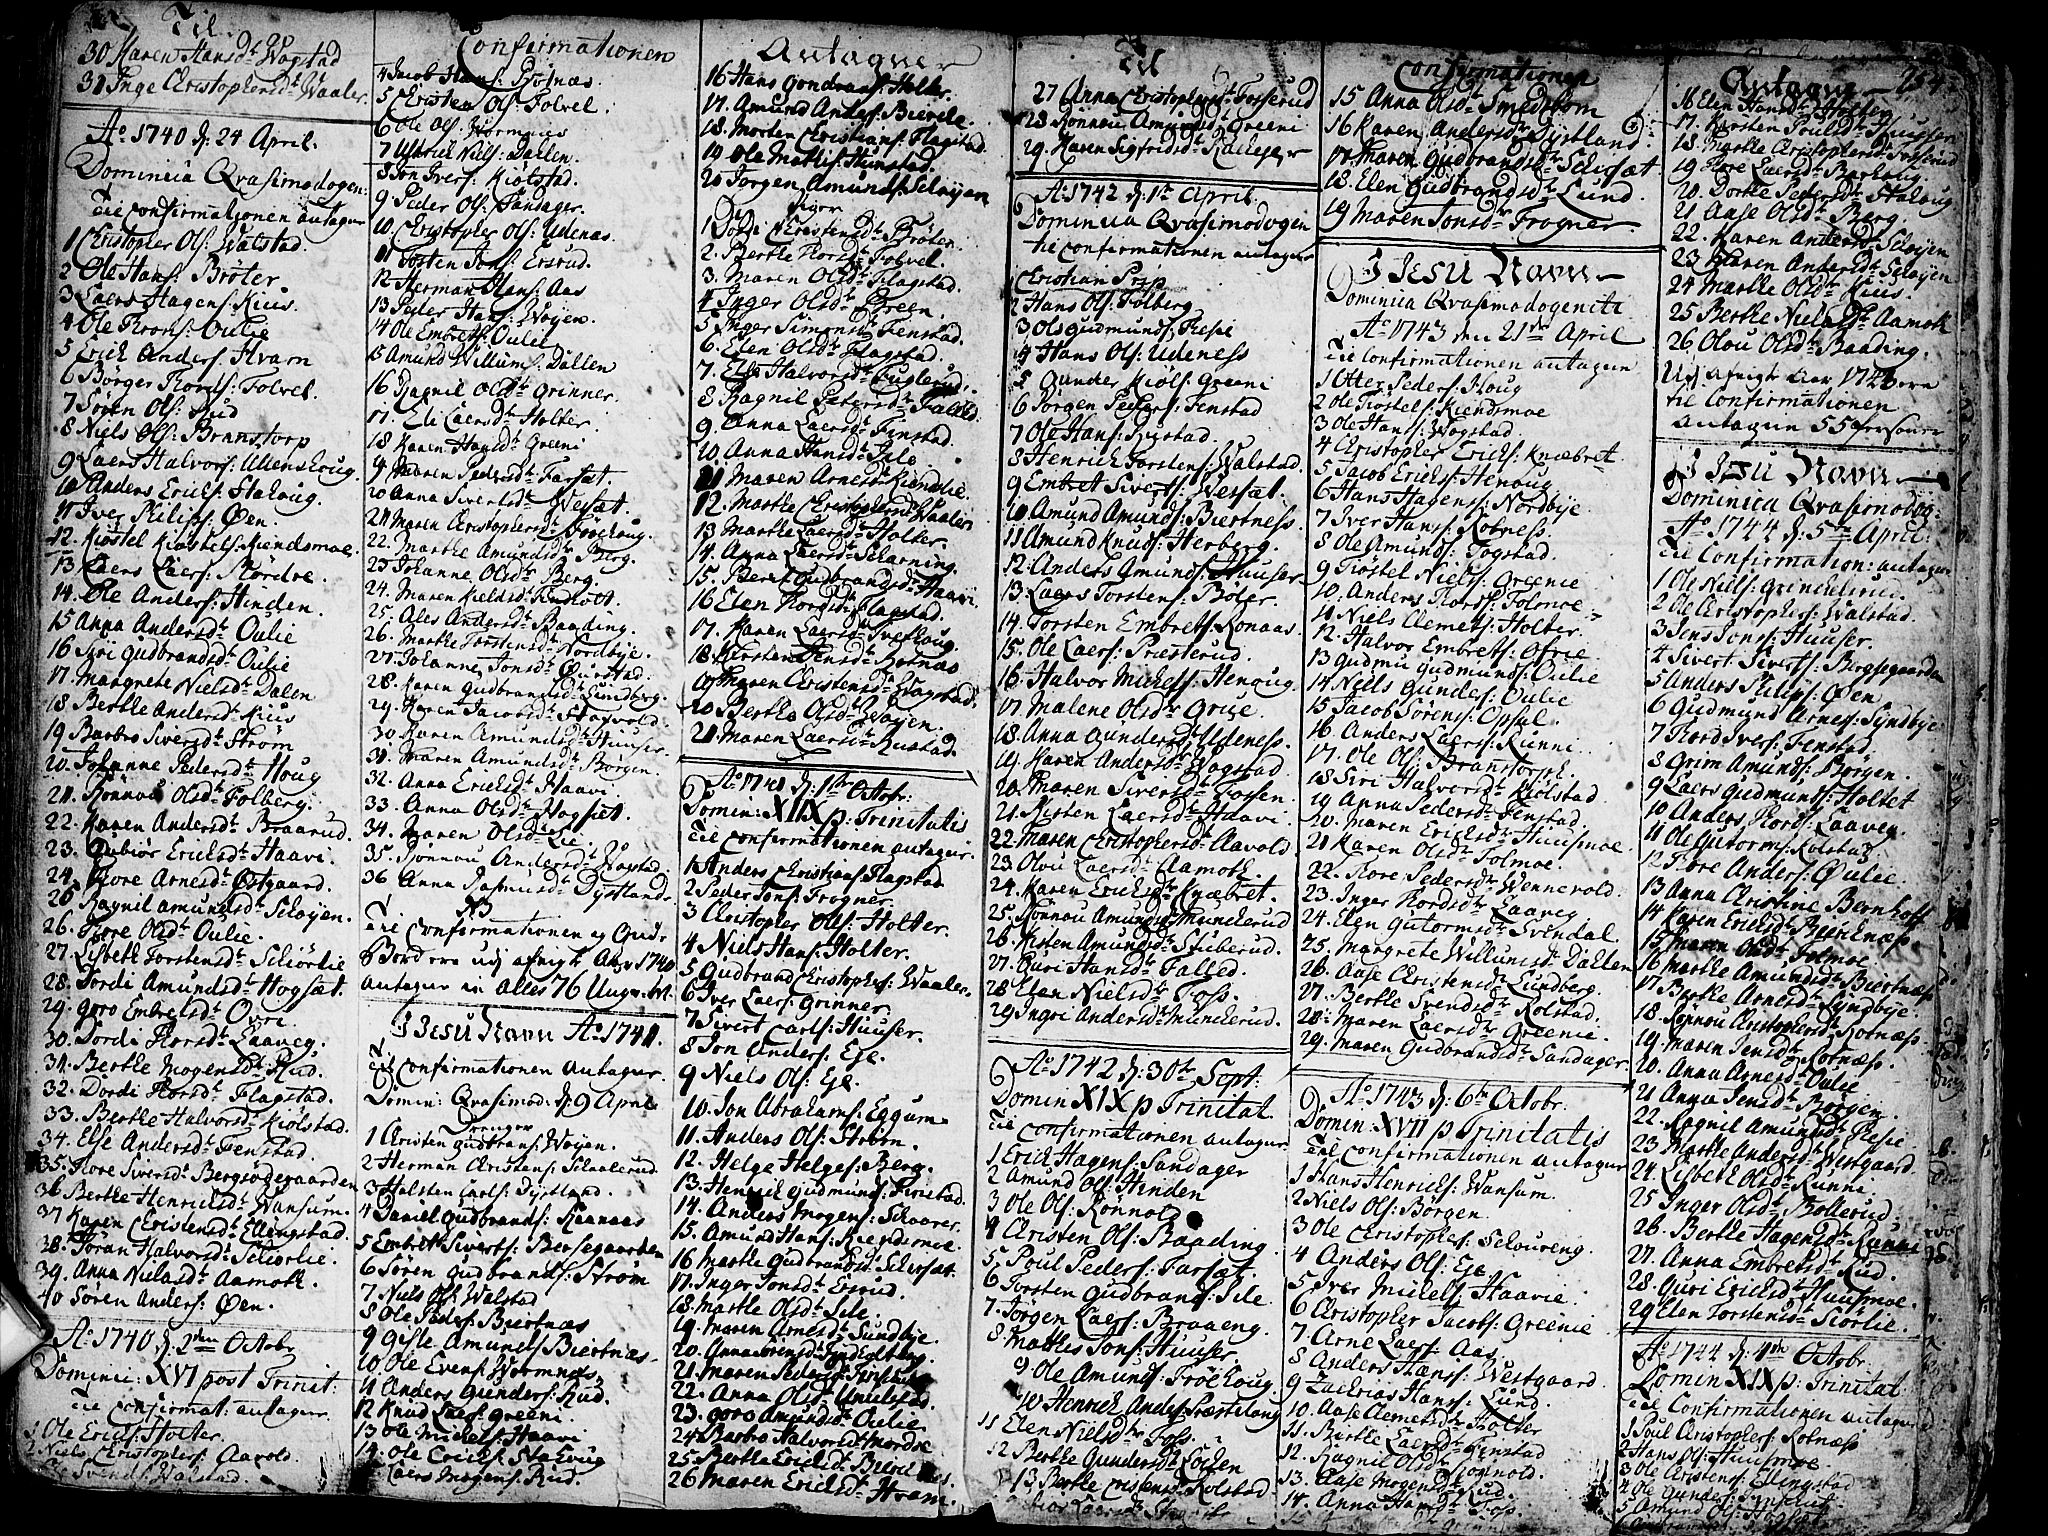 Til
30 Karen Hansd: Wogstad
31 Inge Christophersd: Waaler
Ao. 1740 d: 24 April.
Dominicia Qvasimodogen:
Til Confirmationen antagen
1 Christopher Ols: Walstad.
2 Ole Hans: Brøter
3 Laers Hagens: Kius.
4 Ole Thors: Oulie
5 Erich Anders: Hvam
6 Børger Thords: Folvel.
7 Søren Ols: Rud
8 Niels Ols: Branstorp
9 Laers Halvors: Ullenshoug
10 Anders Erichs: Hakoug.
11 Iver Philips: Øen.
12. Kiøstel Kiøstels: Kiendsmoe.
13 Laers Laers: Mørdre.
14. Ole Anders: Hinden.
15 Anna Andersd: Oulie
16 Siri Gudbrandsd: Oulie
17. Margrete Nielsd: Dalen
18 Berthe Andersd: Kius
19 Barbro Siversd: Strøm
20. Johanne Pedersd: Houg
21. Rønnou Olsd: Folberg.
22. Karen Andersd: Braarud.
23. Gubiør Erichsd: Haavi.
24. Thore Arnesd: Østgaard.
25 Ragnil Amundsd: Seløyen.
26. Thore Olsd: Oulie.
27. Lisbeth Torstensd: Schiørlie
28. Jordi Amundsd: Hogsæt.
29. Goro Embretsd: Ovri.
30. Jordi Thorsd: Laaveg.
31. Berthe Mogensd: Rud.
32. Dordi Thorsd: Flagstad.
33. Berthe Halvorsd: Kiølstad.
34. Else Andersd: Fenstad.
35. Thore Siversd: Bergsødegaarden
36 Berthe Henrichsd: Wansum.
37 Karen Christensd: Ellengstad.
38. Jøran Halvorsd: Schiorlie.
39. Anna Nielsd: Aamoth.
40 Søren Anders: Øen.
Ao. 1740 d: 2den Octobr
Dominic: XVI post Trinit:
Til Confirmat: antagen
1 Ole Erichs: Holter.
2. Niels Christophers: Aavold.
Svends: Walstad.
Confirmationen
4 Jacob Hans: Rotnæs.
5 Christen Ols: Folvel.
6 Ole Ols: Wormnes
7 Ulrick Niels: Dallen.
8 Jon Ivers: Kiølstad.
9 Peder Ols: Sandager.
10. Christopher Ols: Udenæs.
11 Torsten Jons: Ersrud.
12 Herman Hans: Aas
13 Peder Hans: Woyen.
14 Ole Embrets: Oulie
15 Amund Willums: Dallen
16 Ragnil Olsd: Grinner.
17. Eli Laersd: Holter.
18 Karen Hansd: Greeni
19 Maren Pedersd: Farsæt.
20 Anna Sivertsd: Wesæt.
21 Maren Christophersd: Frøshoug.
22. Marthe Amundsd: Berg.
23 Johanne Olsd: Berg.
24. Maren Keldsd: Fundholt.
25. Ales Andersd: Baading.
26. Marthe Torstensd: Nordbye.
27. Johanne Jonsd: Ourstad.
28. Karen Gudbrandsd: Lundberg.
29. Karen Jacobsd: Skogvold.
30 Karen Amundsd: Huuser.
31. Maren Amundsd: Børgen.
32. Anna Erichsd: Haavi.
33. Anna Olsd: Hogsæt.
34. Maren Olsd: Lie.
35. Rønnou Andersd: Wogstad
36 Anna Rasmusd: Dystland.
NB
Til Confirmationen og Guds
Bord ere udj afvigte Aar 1740
antagen in alles 76 Unge.
J Jesu Navn Ao. 1741.
Til Confirmationen Antagen
Domin: Qvasimod: d: 9 April
Drenger
1 Christen Gudbrans: Woyen.
2 Herman Christens: Schaalerud
3 Halsten Carls: Dystland.
4 Daniel Gudbrands: Raanaas
5 Embret Siverts: Bersegaarden
6 Søren Gudbrands: Strøm
7. Niels Ols: Walstad
8 Ole Peders: Biertnæs
9 Gisle Amunds: Biertnæs.
10. Ole Evens: Wormnes
11 Anders Gunders: Rud.
12 Knud Laers: Greeni.
13 Ole Michels: Haavi
14. Ole Erichs: Hakoug
Laers Mogens: Rud.
Antagner
16 Hans Gondrans: Holter.
17. Amund Anders: Bierche.
18. Morten Christians: Flagstad.
19. Ole Mathis: Hunstad.
20 Jørgen Amunds: Seloyen
Piger
1 Dordi Christensd: Brøter.
2. Berthe Thorsd: Folvel.
3. Maren Olsd: Flagstad.
4. Inger Olsd: Green.
5 Inger Simonsd: Fenstad.
6. Elen Olsd: Flagstad.
7. Else Halvorsd: Fuglerud.
8 Ragnil Petersd:
9. Anna Laersd: Finstad.
10. Anna Hansd: Sele
11 Maren Arnesd: Kiendslie.
12. Marthe Christophersd: Waaler
13 Marthe Laersd: Holter.
14. Anna Laersd: Scharning.
15. Beret Gudbrandsd: Haavi
16 Elen Thordsd: Flagstad.
17. Karen Laersd: Tvethoug.
18. Kirsten Jensd: Rotnæs
19 Maren Christensd: Wagstad.
20 Berthe Olsd: Woyen.
21. Maren Laersd: Rustad
Ao. 1741 d: 1ste Octobr:
Domin: XIIX p: Trinitatis
Til Confirmationen antagen.
1 Anders Christians: Flagstad
2 Peder Jons: Frogner.
3 Christopher Ols: Holter.
4 Niels Hans: Holter.
5 Gudbrand Christophers: Waaler.
6 Iver Laers: Grinner
7 Sivert Carls: Huuser.
8 Jon Anders: Eje.
9 Niels Ols: Eje.
10. Jon Abrahams: Eggum.
11. Anders Ols: Strøm.
12. Helge Helges: Berg.
13. Henrik Gudmunds: Finstad.
14. Anders Mogens: Schaarer.
15. Amund Hans: Kiendsmoe.
16 Marthe Gudbrandsd: Schersæt.
17. Inger Jonsd: Ersrud.
18. Marthe Olsd: Sele.
19. Maren Arnesd: Sundbye.
20. Anna Sørensd:
21. Maren Pedersd: Finstad
22. Anna Olsd:
23. Goro Amundsd: Oulie
24 Barbra Halvorsd: Mordre
25. Berthe Erichsd:
26 Maren Erichsd: Hvam.
Til
27 Anna Christophersd: Fosserud
28 Rønnou Amundsd: Greeni
29. Karen Sigfridsd: Kallerer
Ao. 1742 d: 1te April.
Dominicia Qvasimodogen
til Confirmationen antagen
Christian Prip
2 Hans Ols: Folberg
3 Ols Gudmunds: Resie
4 Hans Ols: Udeness
5 Gunder Kiøls: Greeni
6 Jørgen Peders: Fenstad
7 Ole Hans: Rustad.
8 Henrich Torstens: Walstad.
9 Embret Siverts: Wessæt.
10 Amund Amunds: Biertness.
11 Amund Knuds: Herberg.
12. Anders Amunds: Huuser
13. Laers Torstens: Boler.
14. Torsten Embrets: Ronaas.
15. Ole Laers: Priesterud.
16. Halvor Michels: Henoug.
17 Malene Olsd: Grise.
18. Anna Gundersd: Udeness.
19. Karen Andersd: Wogstad
20. Maren Siversd: Fossen.
21. Kirsten Laersd: Haavi.
22. Maren Christophersd: Aavold
23 Olou Laersd: Aamoth.
24. Karen Erichsd: Knæbret.
25. Rønnou Amundsd: Munckerud
26. Kisten Amundsd: Stuberud.
27. Guri Hansd: Falled.
28 Elen Nielsd: Foss.
29 Ingri Andersd: Munckerud.
Ao. 1742 d: 30te Sept:
Domin XIX p Trinitat.
Til Confirmationen antagen
1 Erich Hagens: Sandager
2 Amund Ols: Hinden
3 Ole Ols: Ronnold
4 Christen Ols: Baading.
5 Poul Peders: Farsæt.
6 Torsten Gudbrands: Sele.
7. Jørgen Laers: Braaeng.
8. Mathis Jons: Huuser
9 Ole Amunds: Frøshoug.
10 Henrich Anders: Præstelong
11 Elen Nielsd: Foss.
12 Berthe Gundersd: Lochen
13. Berthe Christensd: Rolstad
Confirmationen
15 Anna Olsd: Smedsbom
16 Karen Andersd: Dystland.
17 Maren Gudbrandsd: Schersæt.
18. Elen Gudbrandsd: Lund.
19 Maren Jonsd: Frogner.
J Jesu Navn
Dominica Qvasimodogeniti
Ao. 1743 den 21de April
Til Confirmationen antagen
1 Otter Peders: Houg
2 Ole Kiøstels: Kiendsmoe
3 Ole Hans: Wogstad.
4 Christopher Erichs: Knæbret.
5 Jacob Erichs: Henoug.
6 Hans Hagens: Nordbye.
7 Iver Hans: Rotness.
8 Ole Amunds: Togstad.
9 Kiøstel Niels: Greenie
10. Anders Thords: Folmoe.
11 Niels Clemets: Holter.
12. Halvor Embrets: Ofrie.
13 Gudmu Gudmunds: Oulie
14 Niels Gundes: Oulie
15 Jacob Sørens: Opsal.
16. Anders Laers: Runni.
17. Ole Ols: Branstorph.
18 Siri Halvorsd: Kiølstad
19 Anna Pedersd: Fenstad.
20. Maren Erichsd: Huusmoe.
21 Karen Olsd: Folmoe.
22. Thore Pedersd: Wennevold.
23. Inger Thordsd: Laaveg.
24. Elen Gutormsd: Svendal.
25. Margrete Willumsd: Dallen
26. Aase Christensd: Lundberg.
27. Berthe Svendsd: Rolstad.
28. Maren Laersd: Greenie.
29. Maren Gudbrandsd: Sandager
Ao. 1743 d: 6te Octobr.
Domin: XVII p Trinitatis
Til Confirmationen antagen
1 Hans Henrichs: Wansum.
2 Niels Ols: Børgen.
3 Ole Christophers: Seloureng.
4 Anders Ols: Eje
5 Iver Michels: Haavie.
6 Christopher Jacobs: Greenie
7. Arne Laers: Aas.
8 Anders Hans: Westgaard.
9 Zacharias Hans: Lund.
10. Aase Clemetsd: Holter
11. Berthe Laersd: Fenstad
12. Ragnil Olsd: Rønnold.
13. Aase Mogensd: Rud.
14. Anna Hansd: Foss.
Antagne 254.
16 Elen Hansd: Holter
17. Kirsten Poulsd: Huuser
18. Marthe Christophersd: Fosserud
19 Thore Laersd: Berhoug.
20. Dorthe Pedersd: Hakoug
21 Aase Olsd: Berg.
22. Karen Andersd: Seloyen
23 Maren Andersd: Seloyen
24 Marthe Olsd: Kius.
25 Berthe Nielsd: Aamoth
26. Olou Olsd: Baading.
Udj afvigte Aar 1743 ere
til Confirmationen
antagen 55 Personer
J Jesu Navn
Dominica Qvasimodog:
Ao. 1744 d: 5te April.
Til Confirmation: antagen
1 Ole Niels: Grinchelrud.
2 Ole Christophers: Walstad.
3 Jens Jons: Huuser.
4 Sivert Siverts: Bergsegaarden
5 Anders Philips: Øen
6 Gudmund Arnes: Syndbye
7 Thord Ivers: Fenstad.
8 Grim Amunds: Børgen.
9 Laers Gudmunds: Holtet
10 Anders Thords: Laaveg.
11 Ole Gutorms: Rolstad.
12 Thore Anders: Oulie.
13 Anna Christine Bernhoft
14 Karen Erichsd: Beencknæss
15 Maren Olsd: Folmoe
16 Marthe Amundsd: Biertnæss
17 Berthe Arnesd: Syndbye.
18. Rønnou Christophersd: Rotnæss.
19. Maren Jensd: Rotnæss.
20. Anna Arnesd: Oulie
21 Anna Jensd: Børgen.
22. Ragnil Amundsd: Resie
23 Marthe Andersd: Westgaard.
24. Lisbeth Olsd: Runni
25 Inger Olsd: Bollerud
26. Berthe Hagensd: Runni
27. Anna Embretsd: Rud.
28. Guri Erichsd: Huusmoe.
29 Elen Torstensd: Skiorlie.
Ao. 1744 d: 4de Octobr.
Domin XIX p: Trinitat.
Til Confirmationen antagen
1 Poul Christophers: Rotnæss
2 Hans Ols: Huusmoe.
3 Ole Christens: Ellingstad
4 Ole Gunders: Finstad
5 Amund Ols: Hogsæt